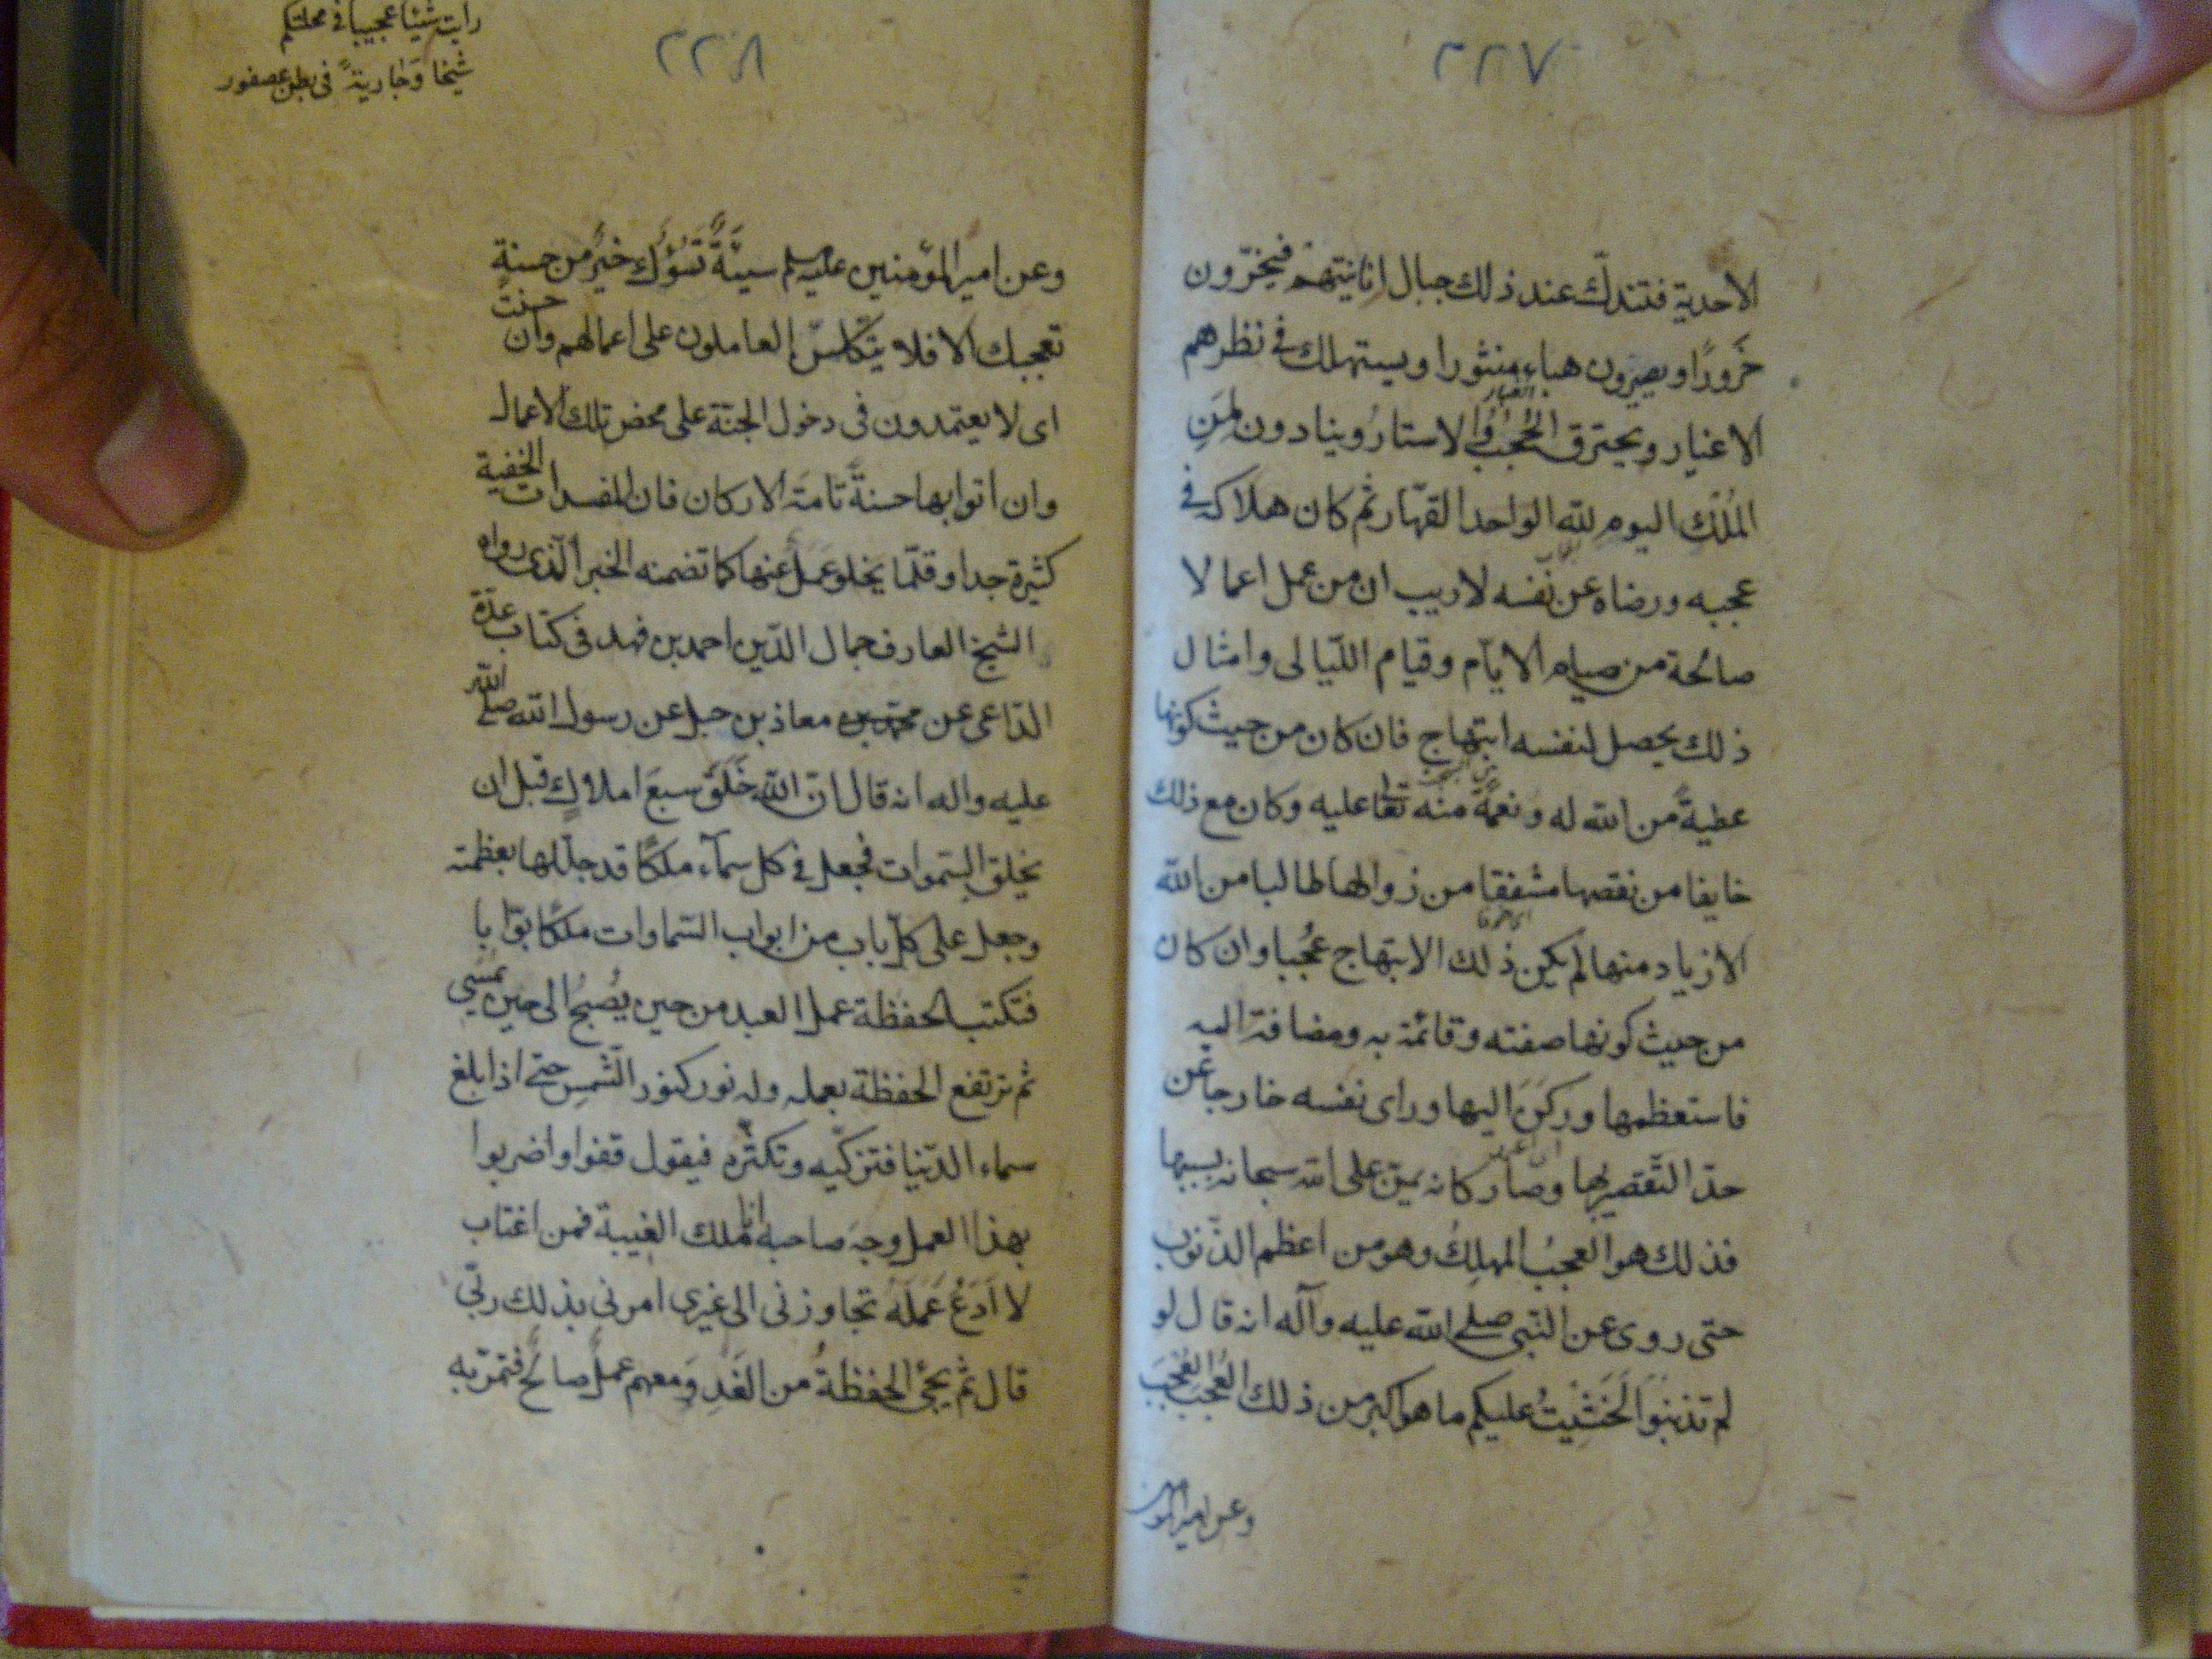 ٢٢٧
الاحدية فتندكّ عند ذلك جبال انانيتهم فيخرّون
خَرورًا ويصيرون هباء منثورا ويستهلك في نظرهم
الاغيار ويحترق الحُجبُ والاستارُ وينادون لمَنِ
المُلك اليوم لله الواحد القهّار ثم كان هلاكه في
عجبه ورضاه عن نفسه لاريب ان من عمل اعمالا
صالحة من صيام الايّام وقيام اللّيالى وامثال
ذلك يحصل لنفسه ابتهاج فان كان من حيث كونها
عطيةً من الله له ونعمةً منه تعا عليه وكان مع ذلك
خايفا من نقصها مشفقا من زوالها طالبا من الله
الازياد منها لم يكن ذلك الابتهاج عُجبا وان كان
من حيث كونها صفته وقائمة به ومضافة اليه
فاستعظمها وركَنَ اليها وراى نفسه خارجا عن
حدّ التّقصير بها وصار كانه يمنّ على الله سبحانه بسببها
فذلك هو العجبُ المهلِكُ وهو من اعظم الذّنوب
حتى روى عن النّبى صلى الله عليه وآله انه قال لو
لم تذنبوا لَخَشْيتُ عليكم ما هو اكبر من ذلك العُجبَ العُجبَ
وعن امير المومنين
٢٢٨
رايت شيئا عجيبا في محلتكم
شيخا وَجاريةً فى بطن عصفور
وعن امير المؤمنين عليه سلم سيئةٌ تَسُؤُكَ خيرٌ من حسنةٍ
تعجبك الا فلا يتّكلنّ العاملون على اعمالهم وان حسنت
اى لا يعتمدون فى دخول الجنّة على محض تلك الاعمال
وان اتوا بها حسنةً تامةَ الاركان فان المفسدات الخفية
كثيرة جدا وقلّما يخلو عمل عنها كما تضمنه الخبر الّذى رواه
الشيخ العارف جمال الدّين احمد بن فهد فى كتاب عدّة
الدّاعى عن محمد بن معاذ بن جبل عن رسول الله صلى الله
عليه واله انه قال انّ اللهَ خَلَقَ سبعَ املاكٍ قبل ان
يخلق السّموات فجعل في كل سمآء ملكًا قد جلّلها بعظمته
وجعل على كلّ باب من ابواب السّماوات ملكًا بوّابا
فتكتب الحفظة عمل العبد من حين يُصبحُ الى حين يمسي
ثم ترتفع الحفظة بعمله وله نور كنور الشّمس حتى اذا بلغ
سماء الدّنيا فتزكّيه وتكثّره فيقول قفوا واضربوا
بهذا العمل وجهَ صاحبه انا ملك الغيبة فمن اغتاب
لا اَدَعُ عَمَلَهُ تجاوزنى الى غيرى امرنى بذلك ربّي
قال ثم يجئ الحفظةُ من الغَدِ وَمعهم عملٌ صالحٌ فتمرّ به